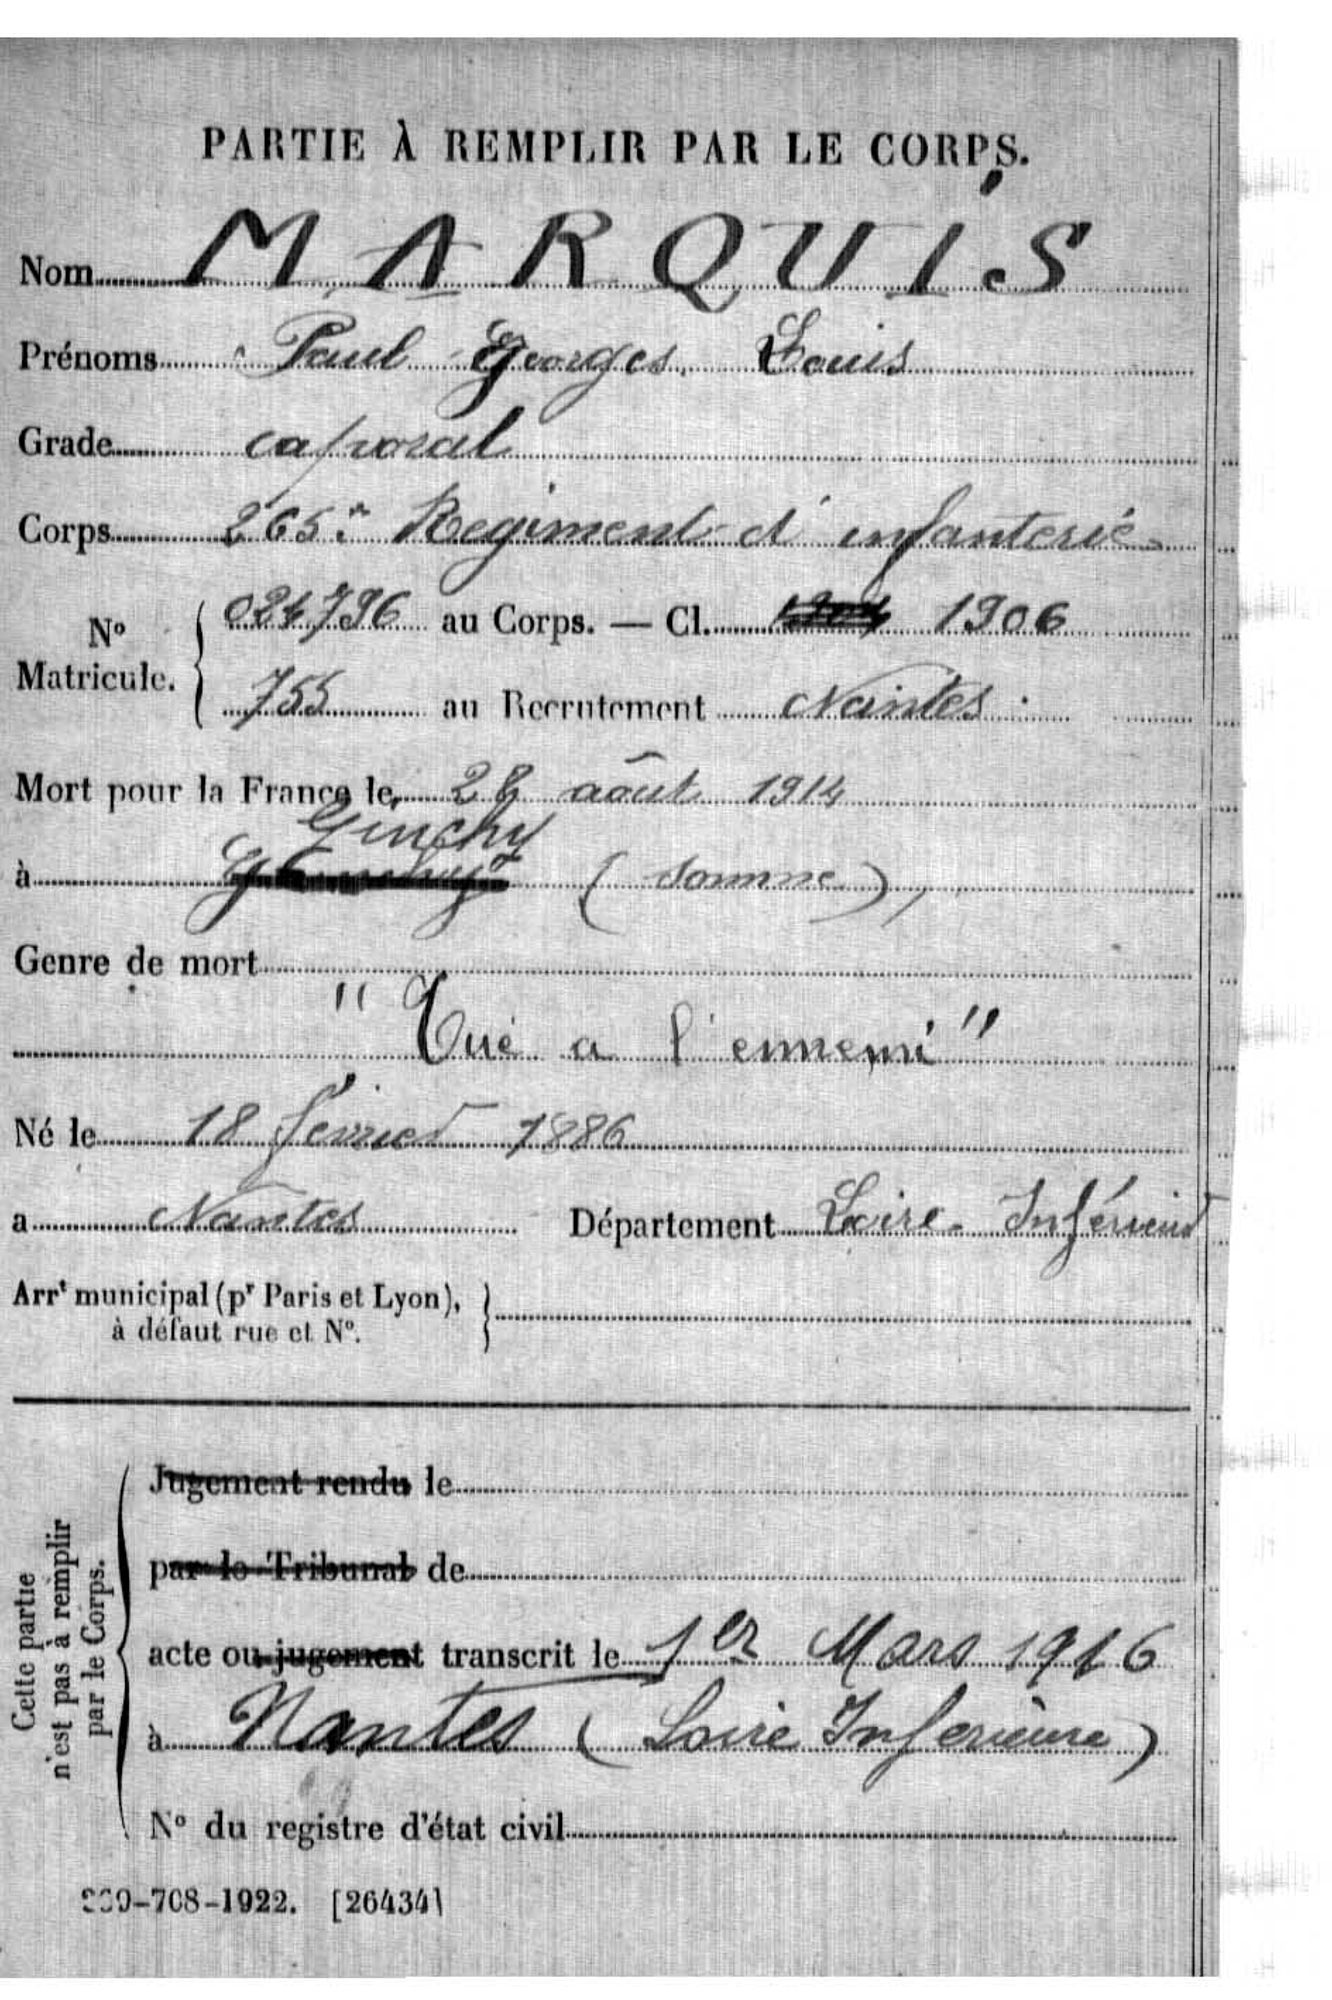 PARTIE À REMPLIR PAR LE CORPS.
Nom MARQUIS
Prénoms Paul Georges Louis
Grade caporal
Corps 265e Regiment d'infanterie
No Matricule. 024796 au Corps. — Cl. 1906
755 au Recrutement Nantes
Mort pour la France le 28 août 1914
Ginchy
à (Somme),
Genre de mort
"Tué a l'ennemi"
Né le 18 février 1886
a Nantes Département Loire-Inférieur
Arrt municipal (pr Paris et Lyon),
à défaut rue et No.
Cette partie
n'est pas à remplir
par le Corps.
Jugement rendu le
par le Tribunal de
acte ou jugement transcrit le 1er Mars 1916
à Nantes (Loire Inferieure)
No du registre d'état civil
-708-1922. [26434]